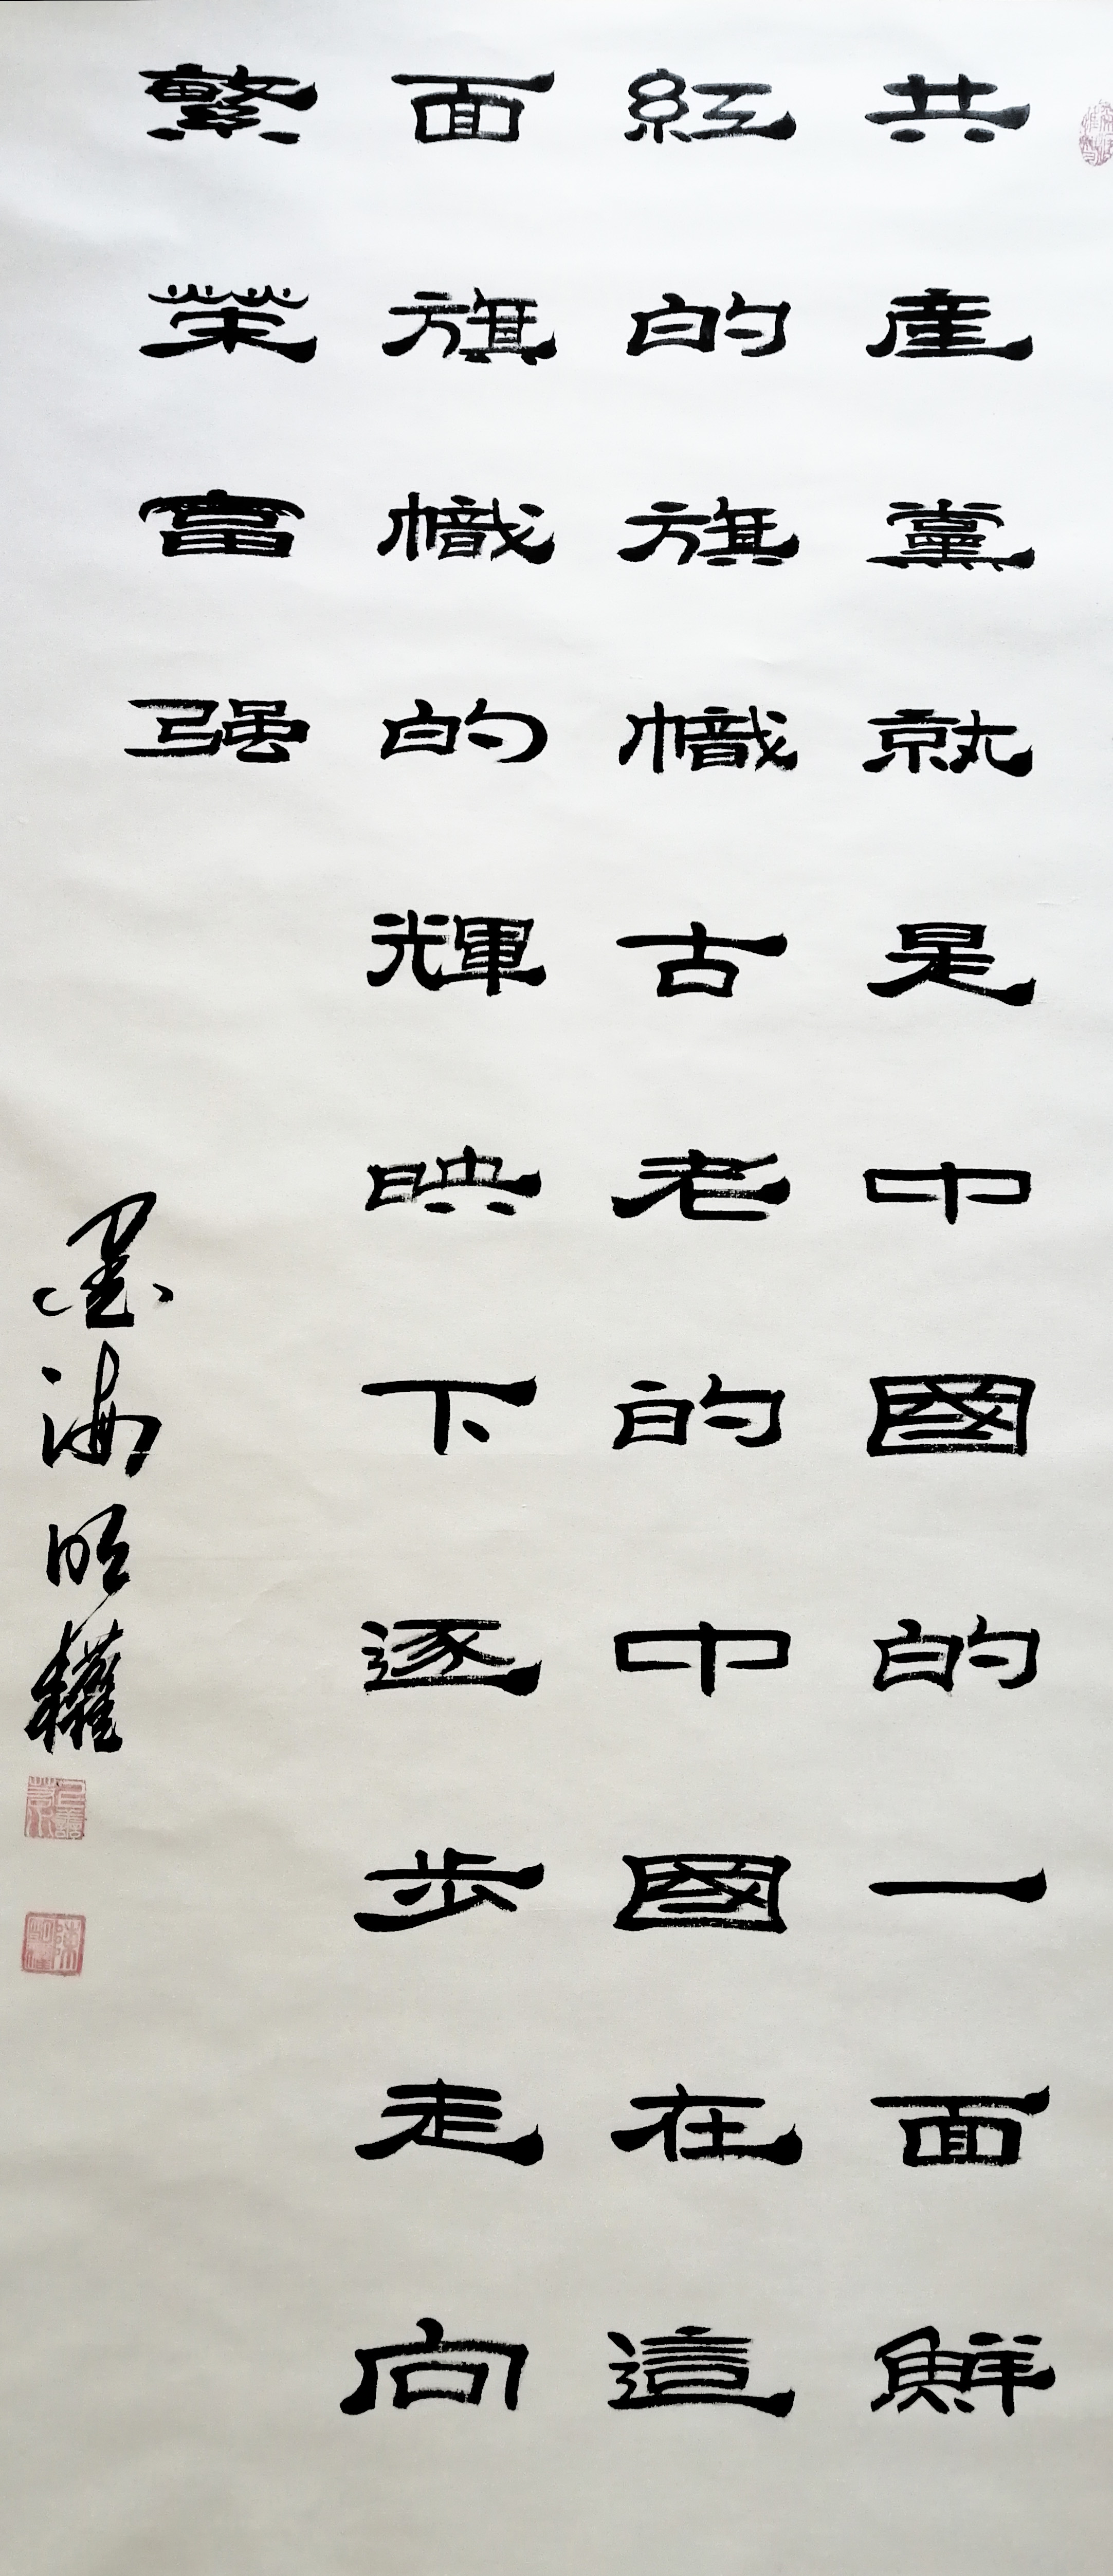 共產黨就是中國的一面鮮
紅的旗幟古老的中國在這
面旗幟的輝映下逐步走向
繁荣富强
墨海明權